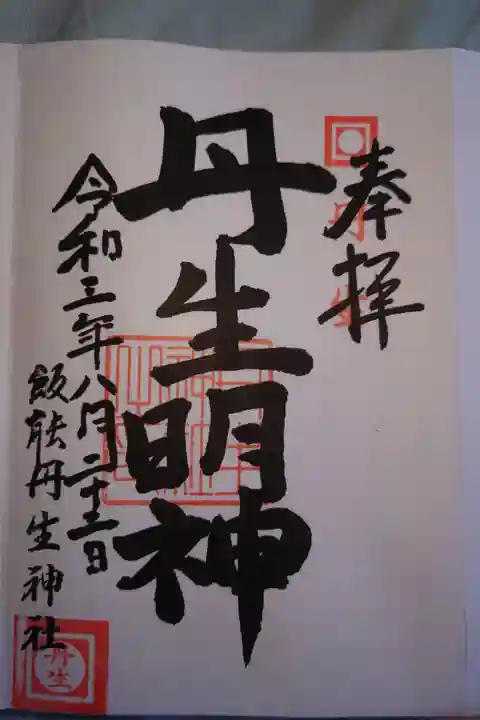 奉拝
丹生
丹生明神
令和三年八月二十二日
飯能丹生神社
丹生